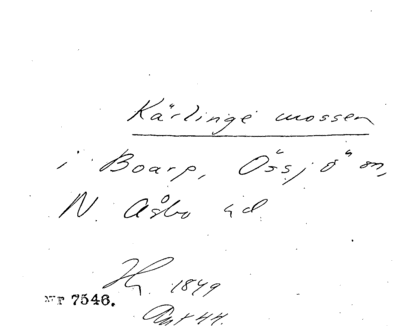 Kärlinge mossen
i Boarp, Össjö sn,
N. Åsbo hd
Hy. 1849
Ant 44.
Nr 7546.